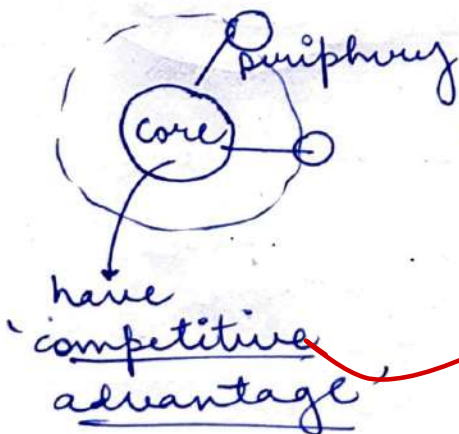 periphery
core
have
'competitive
advantage'